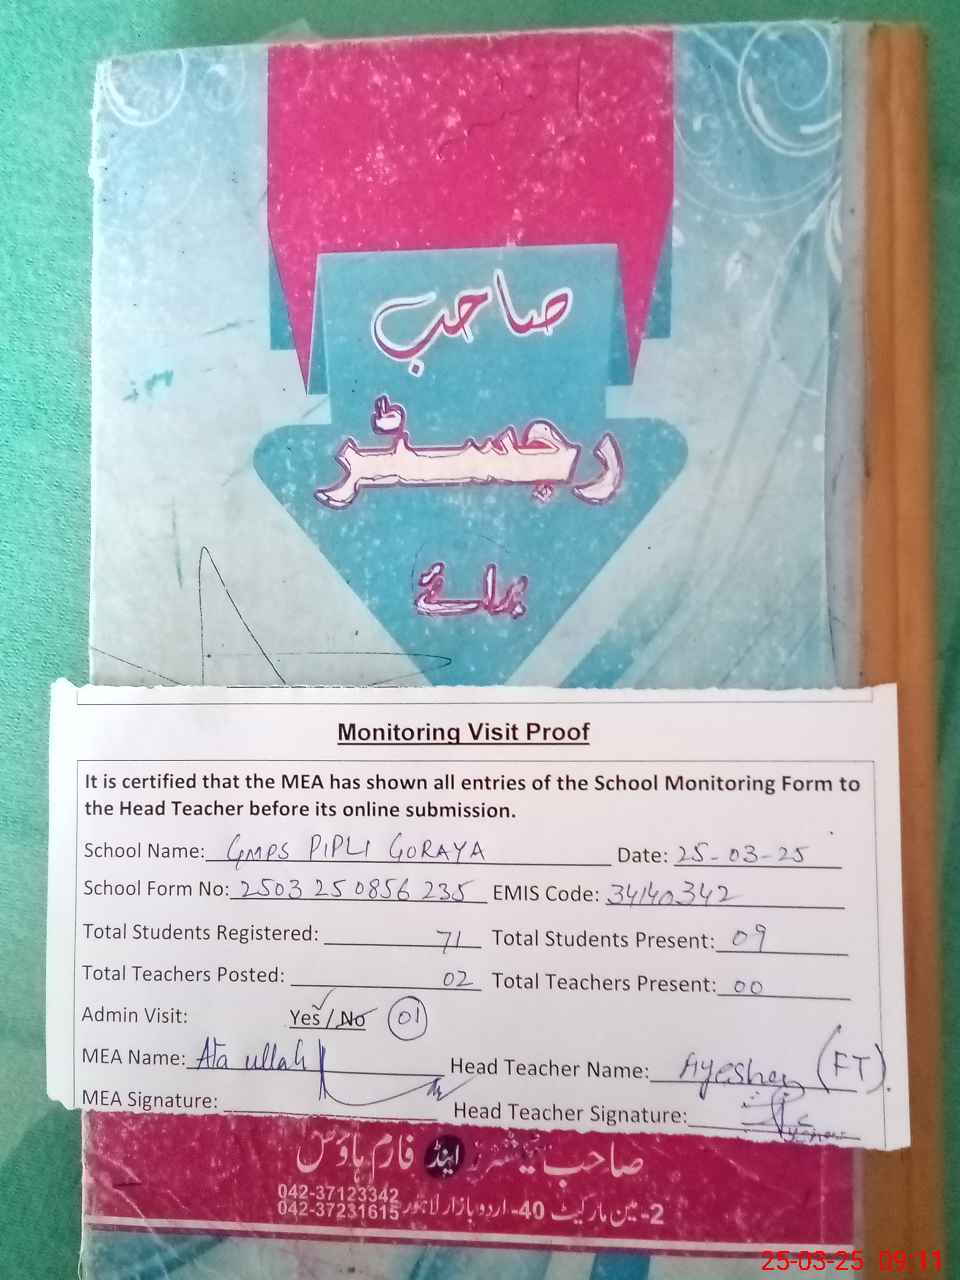 صاحب
رجسٹر
برائے
Monitoring Visit Proof
It is certified that the MEA has shown all entries of the School Monitoring Form to
the Head Teacher before its online submission.
School Name: GMPS PIPLI GORAYA Date: 25-03-25
School Form No: 2503 25 0856 235 EMIS Code: 34140342
Total Students Registered: 71 Total Students Present: 09
Total Teachers Posted: 02 Total Teachers Present: 00
Admin Visit: Yes / No 01
MEA Name: Ata ullah Head Teacher Name: Ayesha (FT).
MEA Signature: Head Teacher Signature:
صاحب پبلشرز اینڈ فارم ہاؤس
042-37123342
042-37231615
2-مین مارکیٹ 40-اردو بازار لاہور
25-03-25 09:11